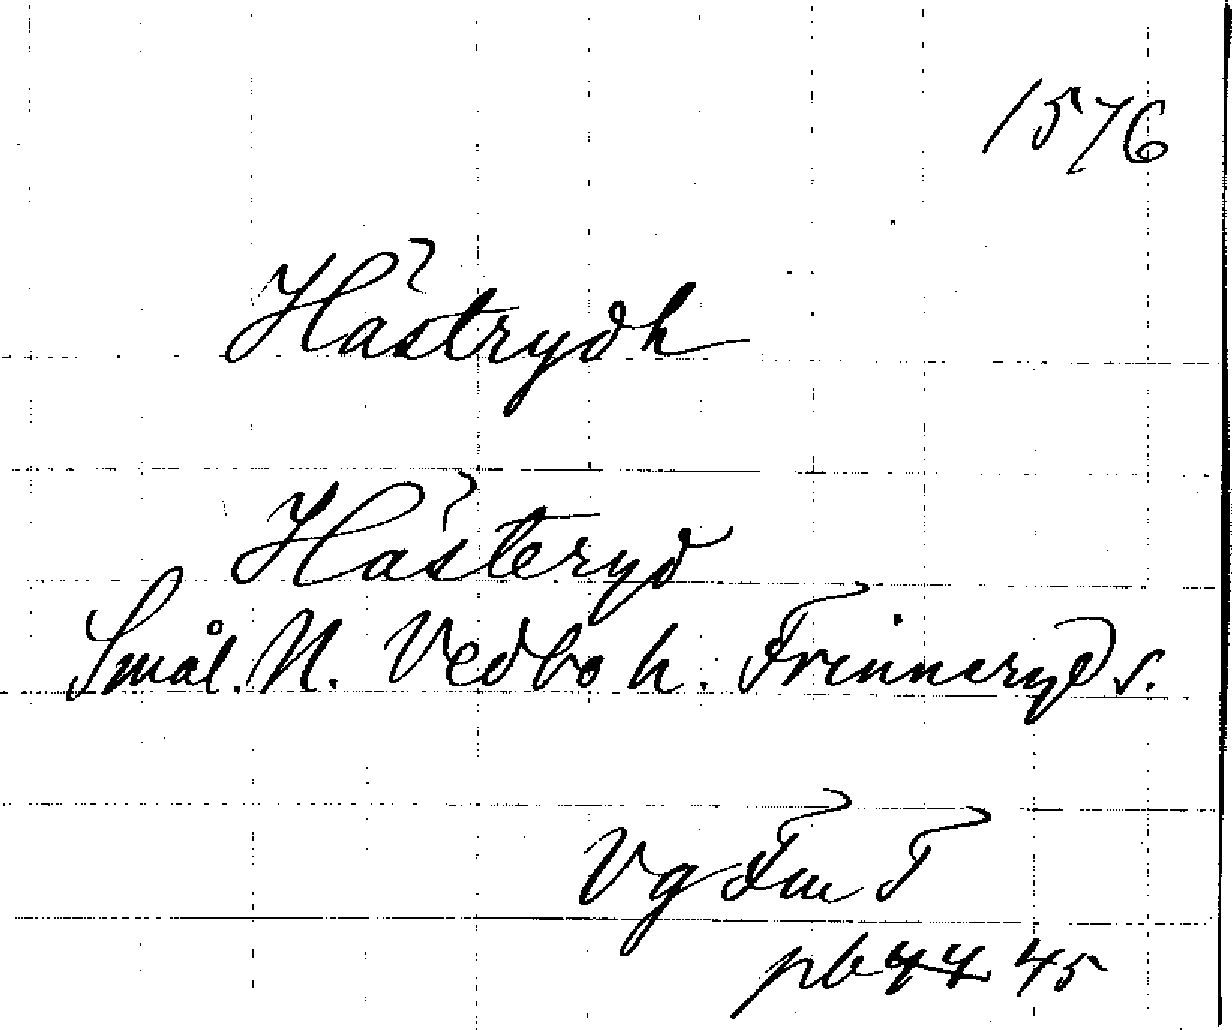 1576
Hästrydh
Hästeryd
Smål. N. Vedbo h. Frinneryd s.
Vg Fm T
pb 44 45